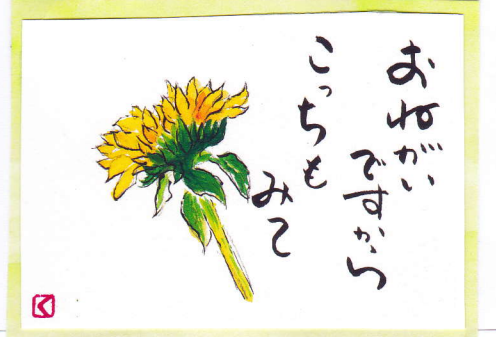 おねがい
ですから
こっちも
みて